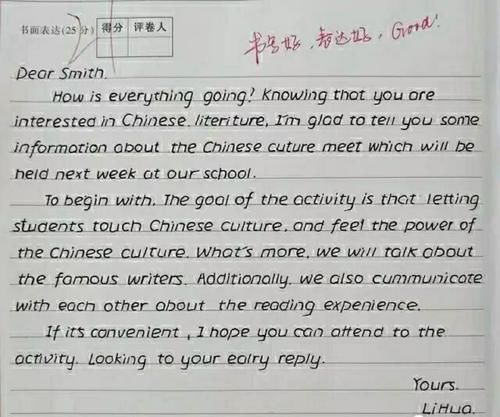 书面表达(25分) 得分 评卷人
书写好,表达好,Good!
Dear Smith,
How is everything going? Knowing that you are
interested in Chinese literiture, I'm glad to tell you some
information about the Chinese cuture meet which will be
held next week at our school.
To begin with, The goal of the activity is that letting
students touch Chinese culture, and feel the power of
the Chinese culture. What's more, we will talk about
the famous writers. Additionally, we also cummunicate
with each other about the reading expenience.
If it's convenient, I hope you can attend to the
activity. Looking to your ealry reply.
Yours,
LiHua.